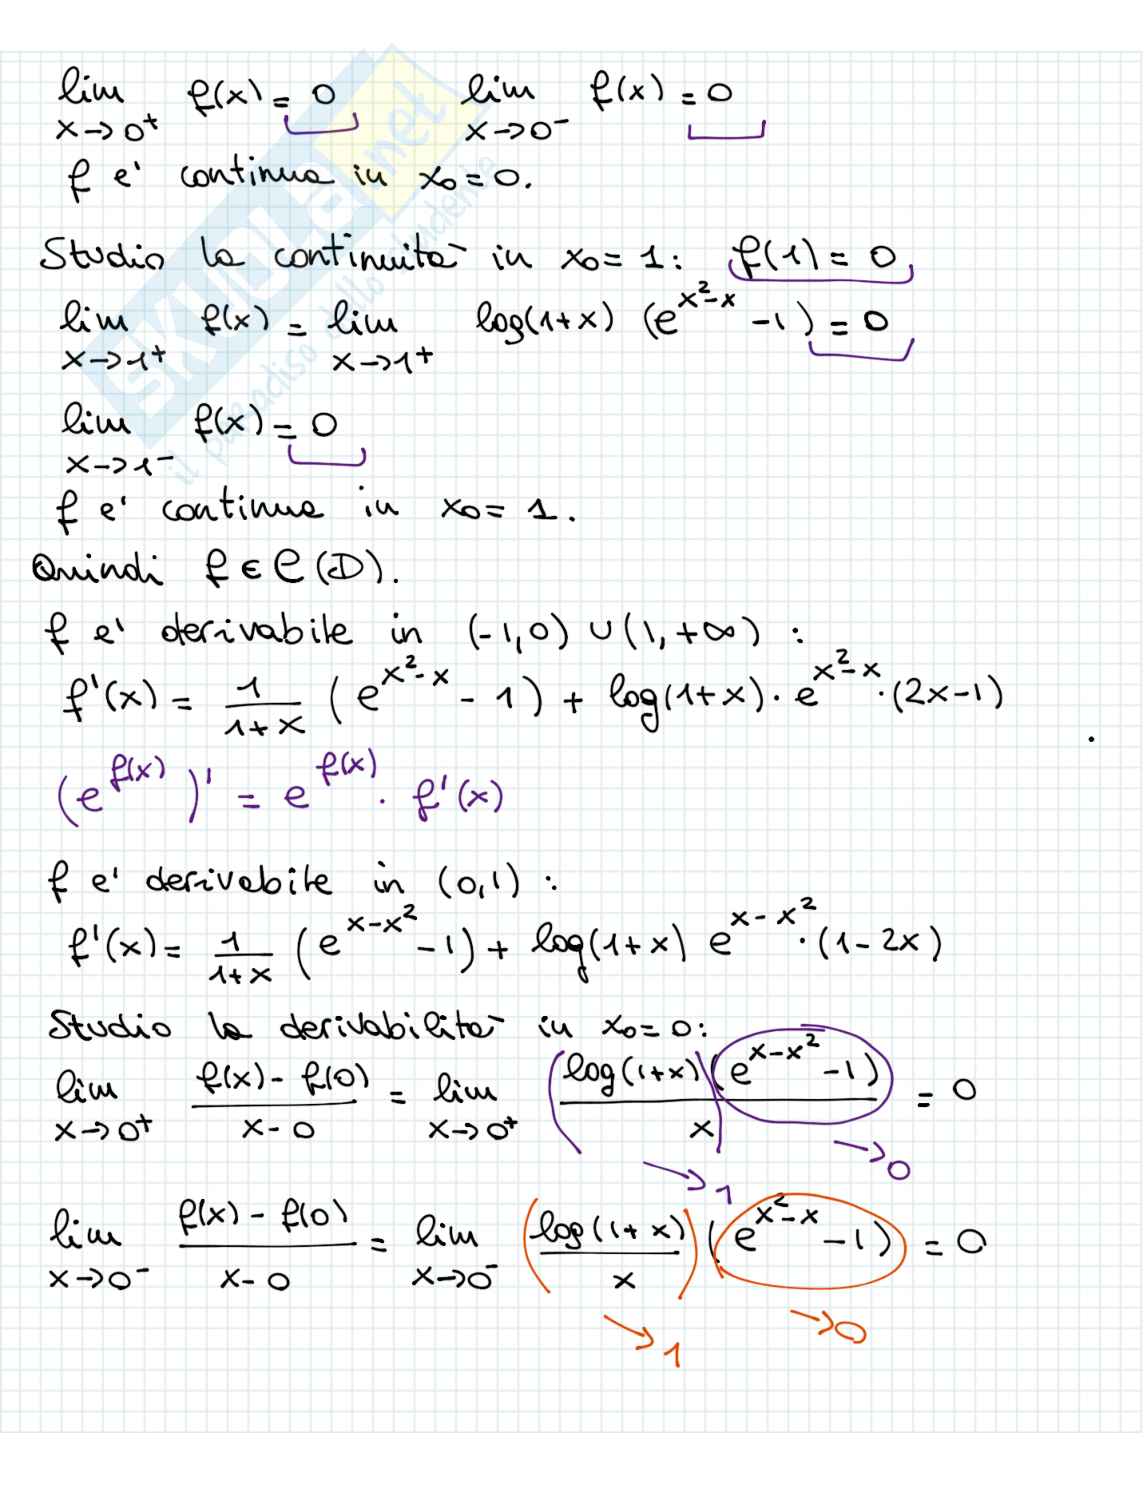 lim x→0⁺ f(x) = 0   lim x→0⁻ f(x) = 0
f e' continua in x₀=0.
Studio la continuità in x₀=1: f(1)=0
lim x→1⁺ f(x) = lim x→1⁺ log(1+x) (e^{x²-x} -1) = 0
lim x→1⁻ f(x) = 0
f e' continua in x₀= 1.
Quindi f ∈ C(D).
f e' derivabile in (-1,0) ∪ (1,+∞) :
f'(x) = 1/(1+x) (e^{x²-x} - 1) + log(1+x) · e^{x²-x} · (2x-1)
(e^{f(x)})' = e^{f(x)} · f'(x)
f e' derivabile in (0,1) :
f'(x) = 1/(1+x) (e^{x-x²} -1) + log(1+x) e^{x-x²} · (1-2x)
Studio la derivabilità in x₀=0:
lim x→0⁺ (f(x) - f(0))/(x-0) = lim x→0⁺ (log(1+x) (e^{x-x²} -1))/x = 0
→0
→1
lim x→0⁻ (f(x) - f(0))/(x-0) = lim x→0⁻ (log(1+x)/x) (e^{x²-x} -1) = 0
→1 →0
SKUOLA.net
il paradiso dello studente